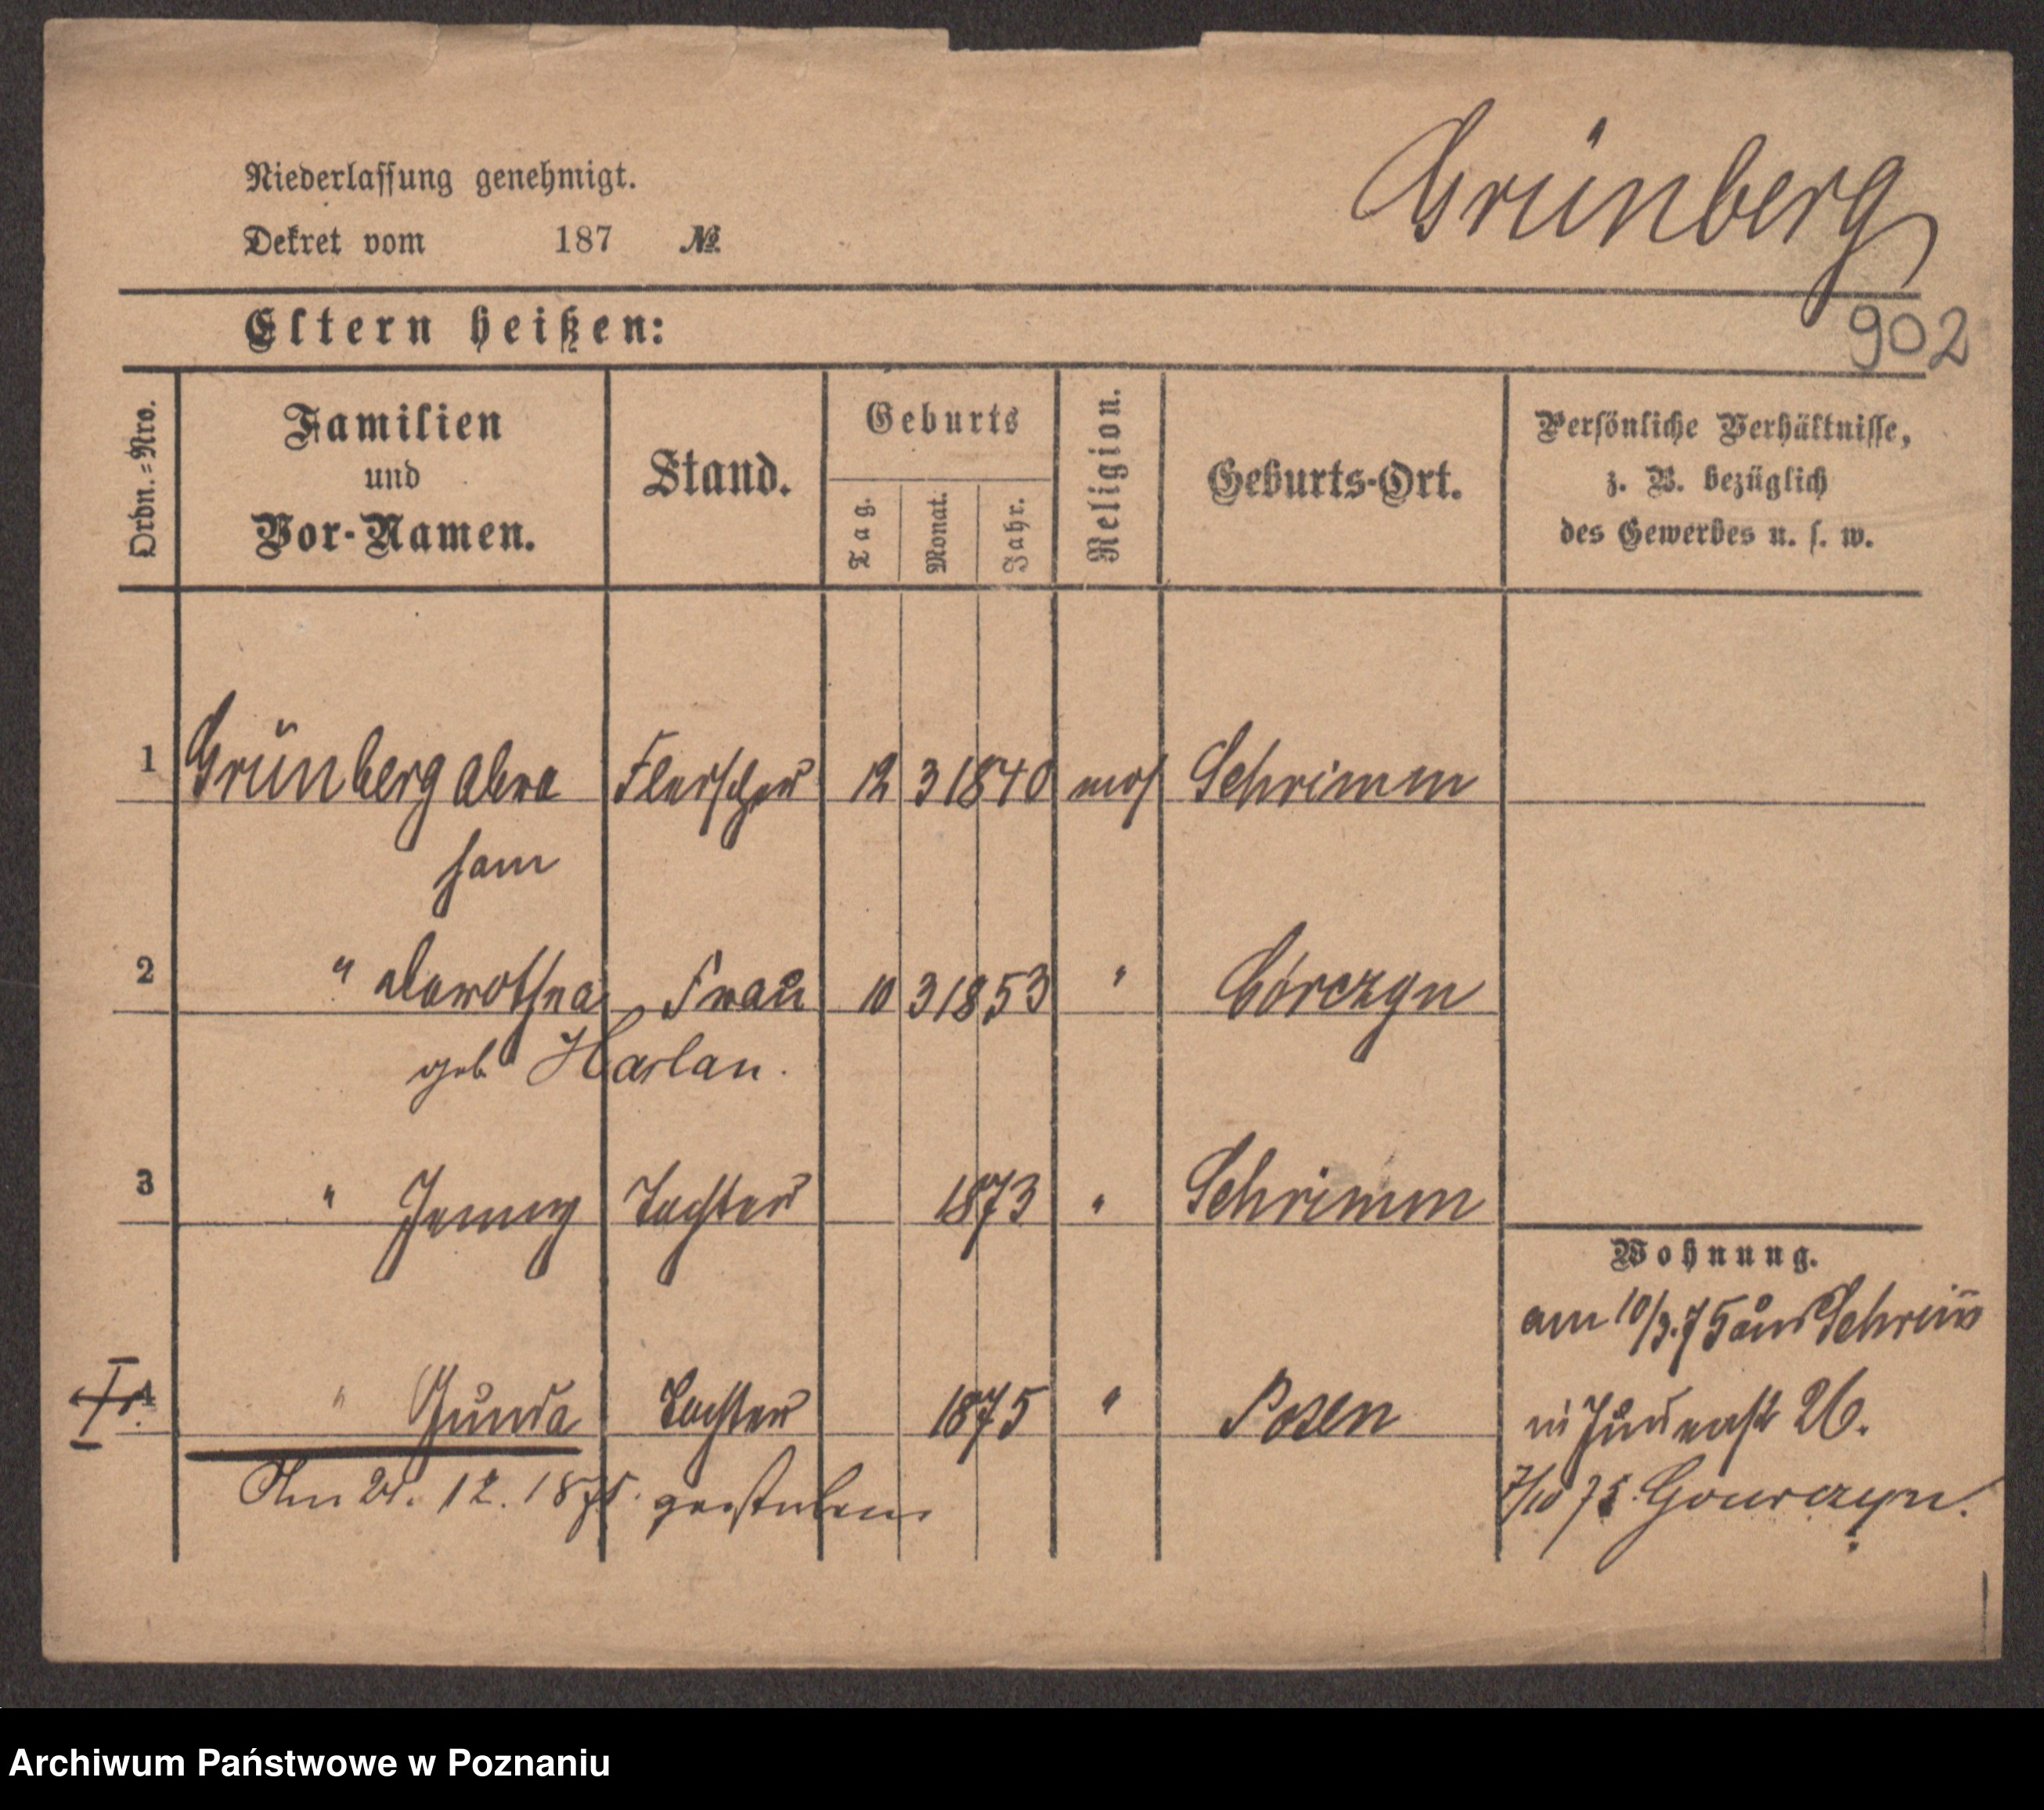 Niederlassung genehmigt.
Grünberg
Dekret vom 187 №
Eltern heißen:
902
Ordn.=Nro.
Familien und Vor-Namen.
Stand.
Geburts
Tag. Monat. Jahr.
Religion.
Geburts-Ort.
Persönliche Verhältnisse,
z. B. bezüglich
des Gewerbes u. s. w.
1 Grünberg Abra Fleischer 12 3 1840 mos Schrimm
ham
2 " Dorothea Frau 10 3 1853 " Górczyn
geb Harlan.
3 " Jenny Tochter 1873 " Schrimm
Wohnung.
am 10/3.75 aus Schrim̄
4 " Tochter 1875 " Posen
in Judenstr 26.
Am 24. 12. 1875. gestorben
7/10 75. Gourczyn.
Archiwum Państwowe w Poznaniu